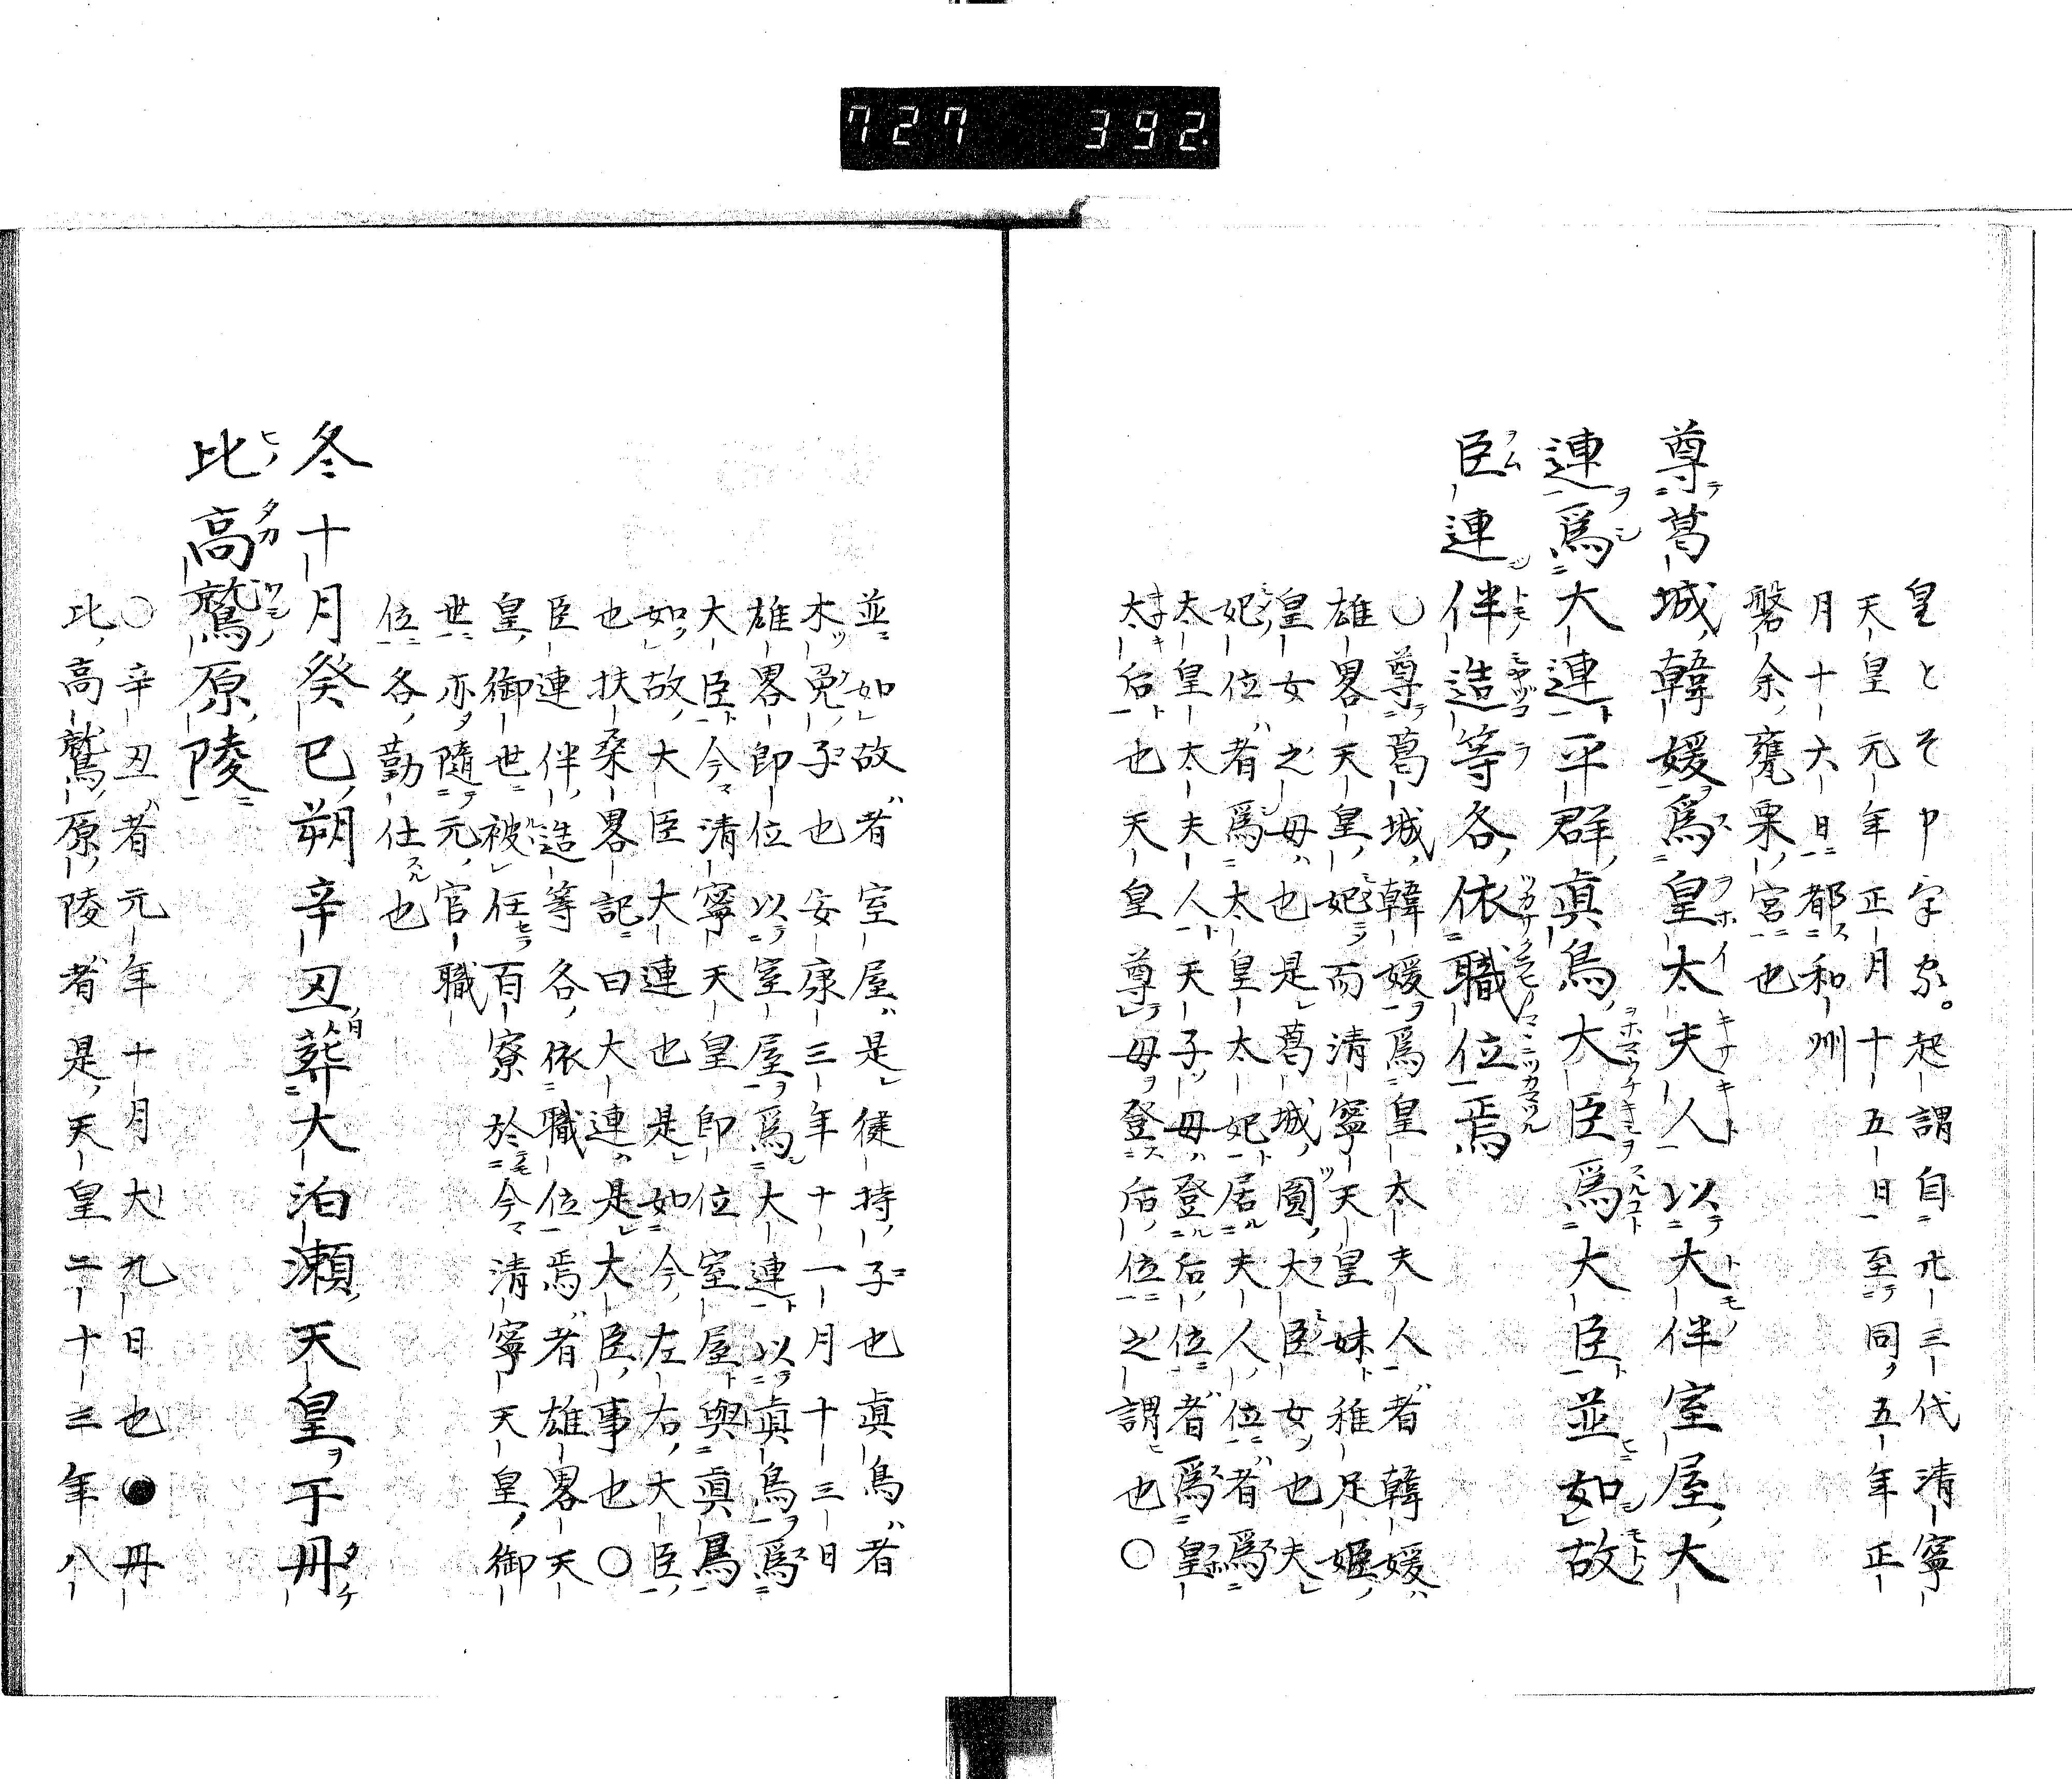 727 392.
皇とそ中字家。起謂自元三代清寧
天皇元年正月十五日至同五年正
月十六日都和州
磐余甕栗宮也
尊葛城韓媛爲皇太夫人以大伴室屋大
連爲大連平群眞鳥大臣爲大臣並如故
臣連伴造等各依職位焉
○尊葛城韓媛爲皇太夫人者韓媛
雄畧天皇妃而清寧天皇妹稚足姫
皇女之母也是葛城圓大臣女也夫
妃位者爲太皇太妃居夫人位者爲
太皇太夫人天子母登后位者爲皇
太后也天皇尊母登后位之謂也○
並如故者室屋是健持子也眞鳥者
木菟子也安康三年十一月十三日
雄畧即位以室屋爲大連以眞鳥爲
大臣今清寧天皇即位室屋與眞鳥
如故大臣大連也是如今左右大臣
也扶桑畧記曰大連是大臣事也○
臣連伴造等各依職位焉者雄畧天
皇御世被任百寮於今清寧天皇御
世亦隨元官職
位各勤仕也
冬十月癸巳朔辛丑葬大泊瀬天皇于丹
比高鷲原陵
○辛丑者元年十月大九日也●丹
比高鷲原陵者是天皇二十三年八